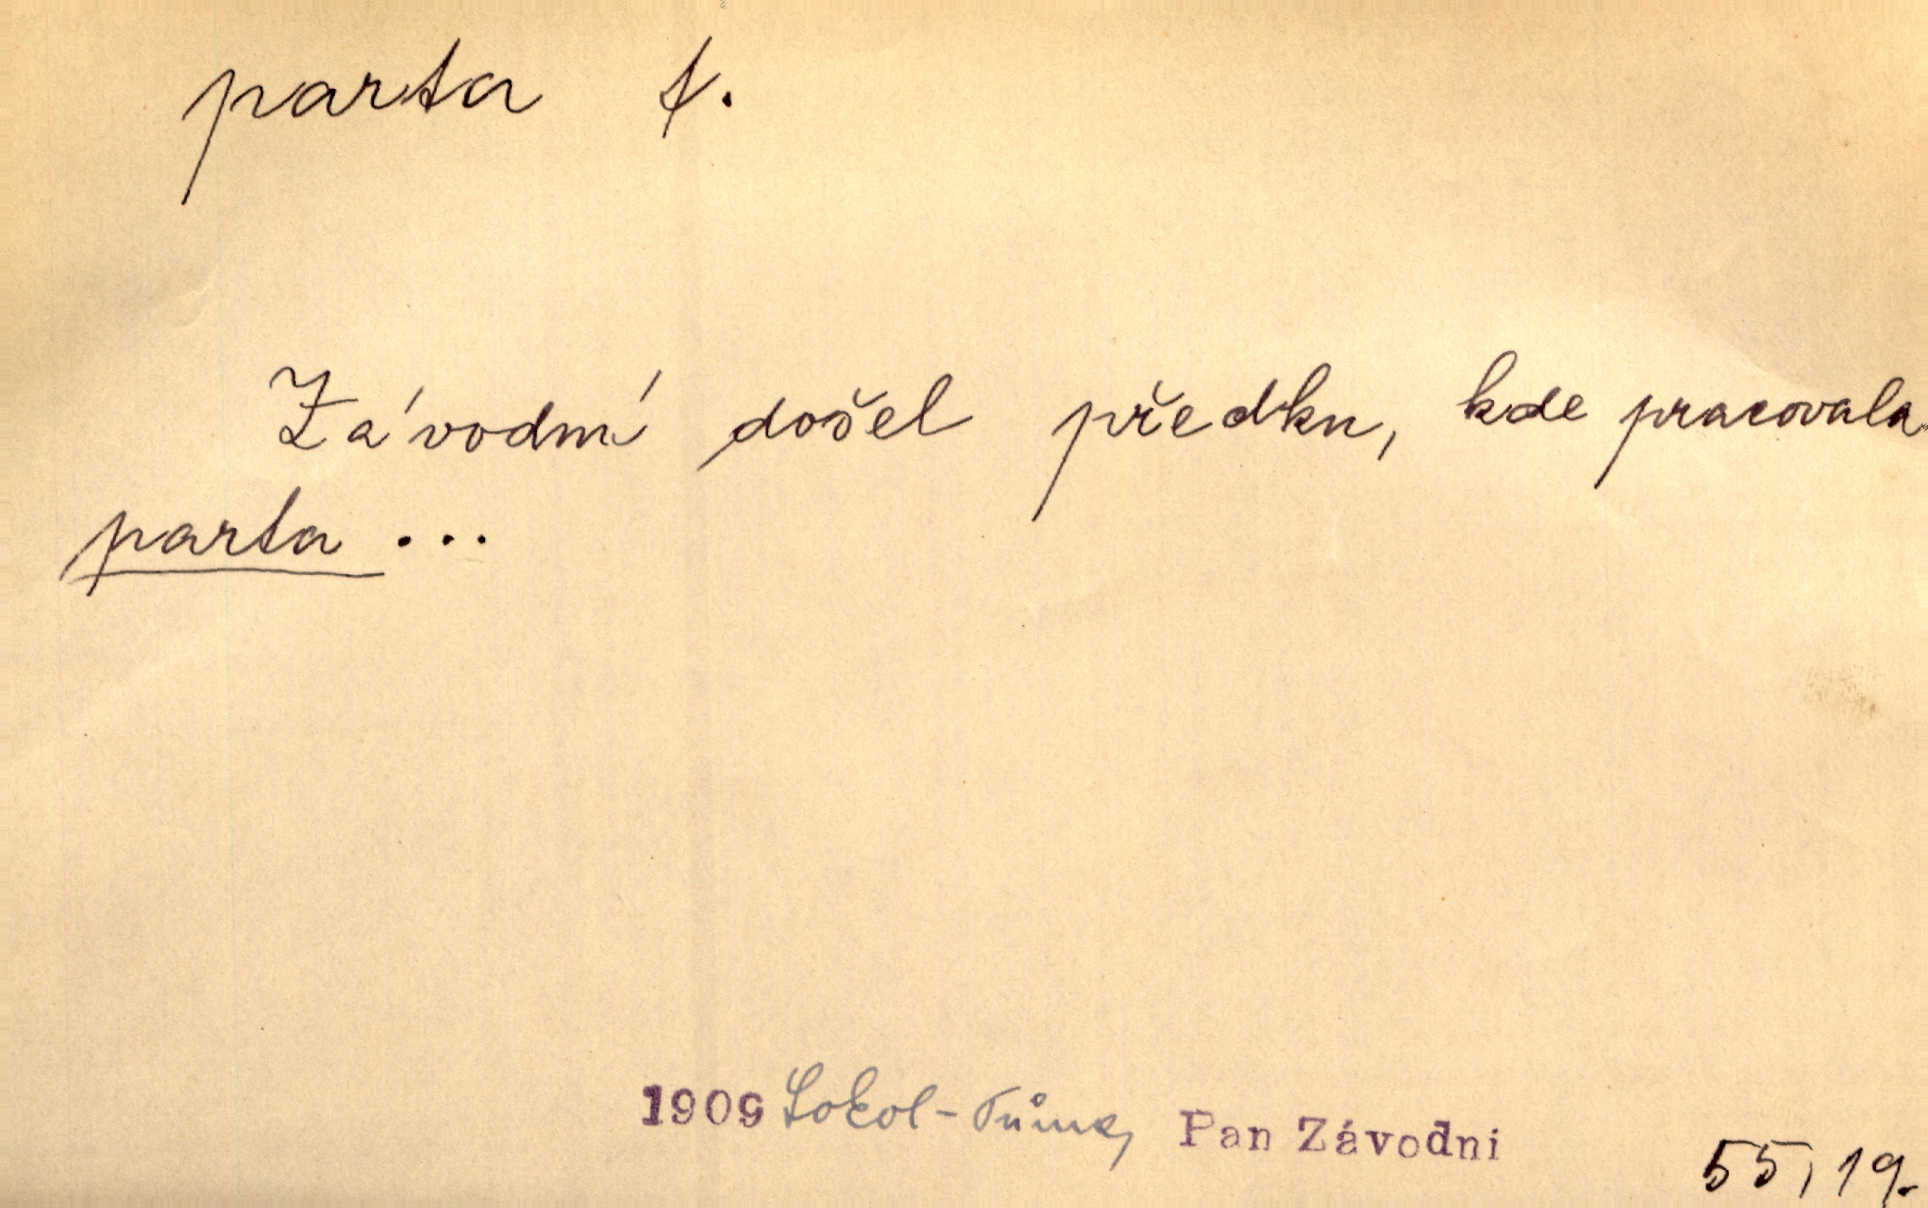 parta f.
Závodní došel předku, kde pracovala
parta ...
1909 Sokol-Tůma, Pan Závodni
55, 19.